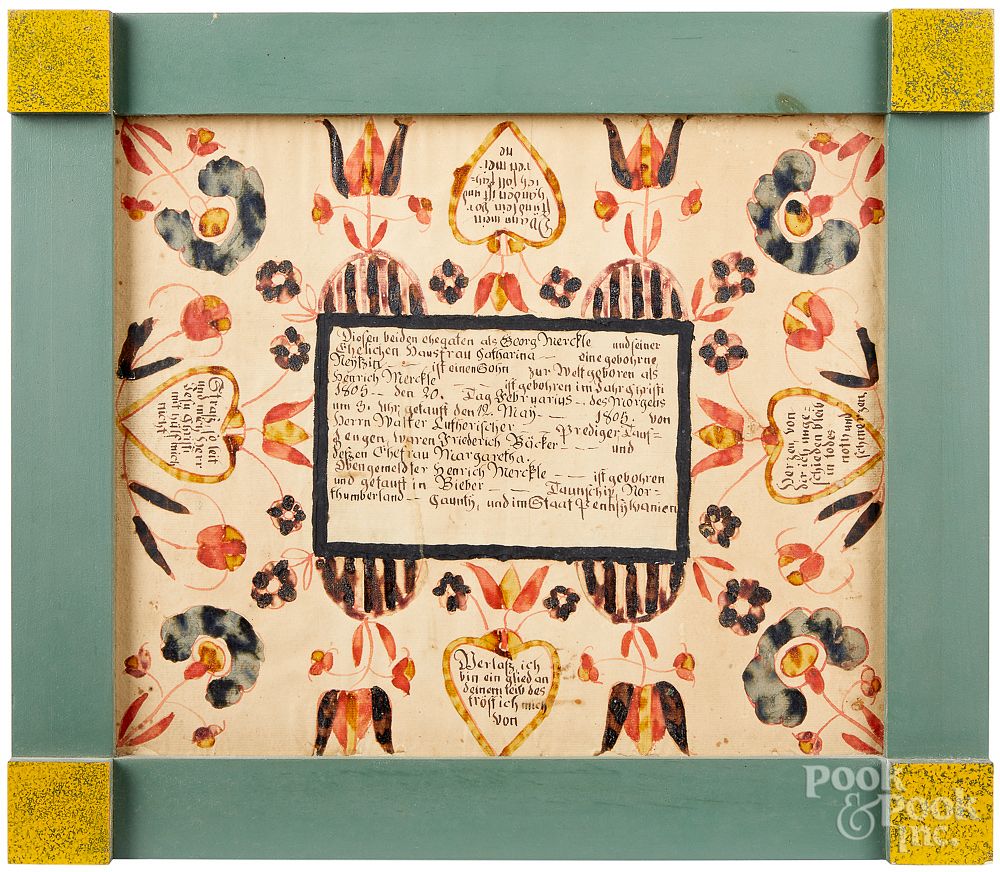 Wann mein
stündlein vor
handen ist und
ich soll fah=
ren mei=
ne
Diesen beiden ehegaten als Georg Merckle und seiner
Ehelichen Hausfrau Catharina — eine gebohrne
— ist einen Sohn zur Welt geboren als
Henrich Merckle — ist gebohren im Jahr Christi
1805 — den 20. Tag Februarius — des Morgens
um 3. Uhr, getauft den 12. May — 1805. von
Herrn Walter Lutherischer — Prediger Tauf=
Zeugen, waren Friederich Bäcker — und
deßen Ehefrau Margaretha.
Obengemeldter Henrich Merckle — ist gebohren
und getauft in Bieber — Taunschip Nor=
thumberland — Caunty, und im Staat Pensylvanien
Straß, so leit
und mich Herr
Jesu Christi
mit hülf mich
nicht
Verlaß, ich
bin ein glied an
deinem leib des
tröst ich mich
von
Herzen, von
dir ich unge=
schieden bleib
in todes
noth und
schmerzen
POOK
& POOK
inc.